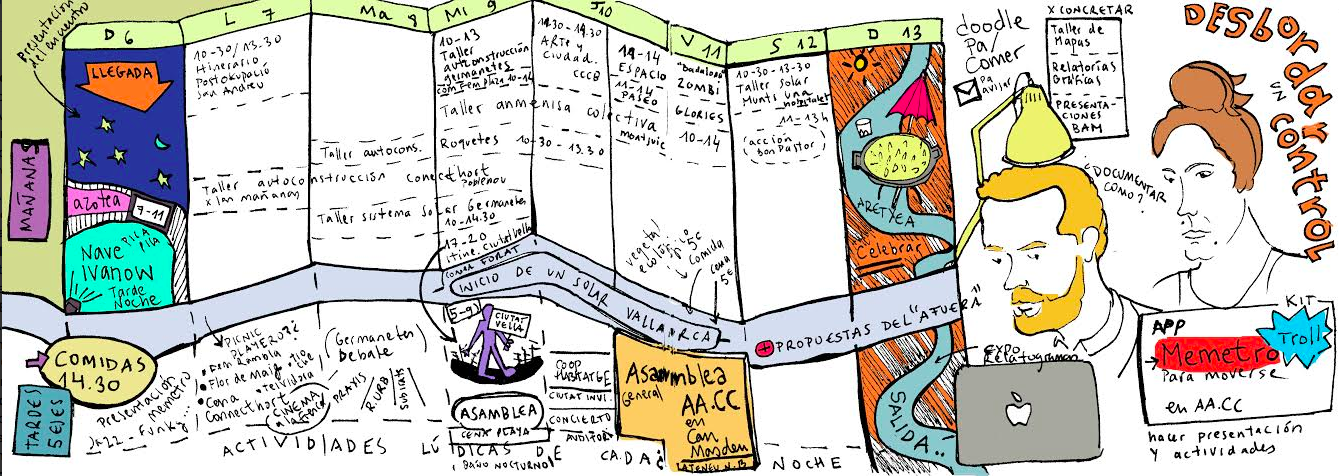 presentación
del encuentro
D 6
L 7
Ma 8
Mi 9
J 10
V 11
S 12
D 13
LLEGADA
MAÑANAS
azotea
7-11
PILA
PILA
Nave
IVANOW
Tarde
Noche
10-30/13.30
Itinerario
Postokupació
San Andreu
Taller autocons.
Taller autoconstrucción Connecthort
x las mañanas
Poblenou
Taller sistema Solar Germanetes
10-14.30
10-13
Taller
autoconstrucción
germanetes
10-14
Taller anmenisa colectiva
Roquetes
17-20
itine. ciutat vella
FORAT
INICIO DE UN SOLAR VALLARCA
ARTE y
Ciudad.
CCCB
10-30-13.30
11-14
ESPACIO
11-14
PASEO
montjuic
vegetal
ecológico
5€
comida
5€
"Badalona"
ZOMBI
GLORIES
10-14
10-30-13-30
Taller Solar
Munts una
Hospitalet
11-13h
(acción
bon Pastor)
ARETXEA
Celebrar
SALIDA..
+ PROPUESTAS DEL "AFUERA"
COMIDAS
14.30
TARDES
5 EJES
presentación
memetro
Jazz - Funky...
PICNIC
PLAYERO?¿
Flor de Maig
Connecthort
CINEMA
(Germanetes)
Debate
PRAXIS
R.URB
5-9
CIUTAT
VELLA
ASAMBLEA
CENA PLAYA
(BAÑO NOCTURNO)
COOP
HABITATGE
CIUTAT INVI.
CONCIERTO
AUDITORI
Asamblea
General
AA.CC
en
Can
Masdeu
ATENEU N.B
ACTIVIDADES LÚDICAS DE CADA NOCHE
doodle
pa/
Comer
pa
avisar
X CONCRETAR
Taller de
Mapas
Relatorías
Gráficas
PRESENTA-
CIONES
BAM
"DOCUMENTAR
COMO?"
EXPO
Relatogramas
DESbordar
UN
CONTROL
KIT
Troll
APP
Memetro
para moverse
en AA.CC
hacer presentación
y actividades